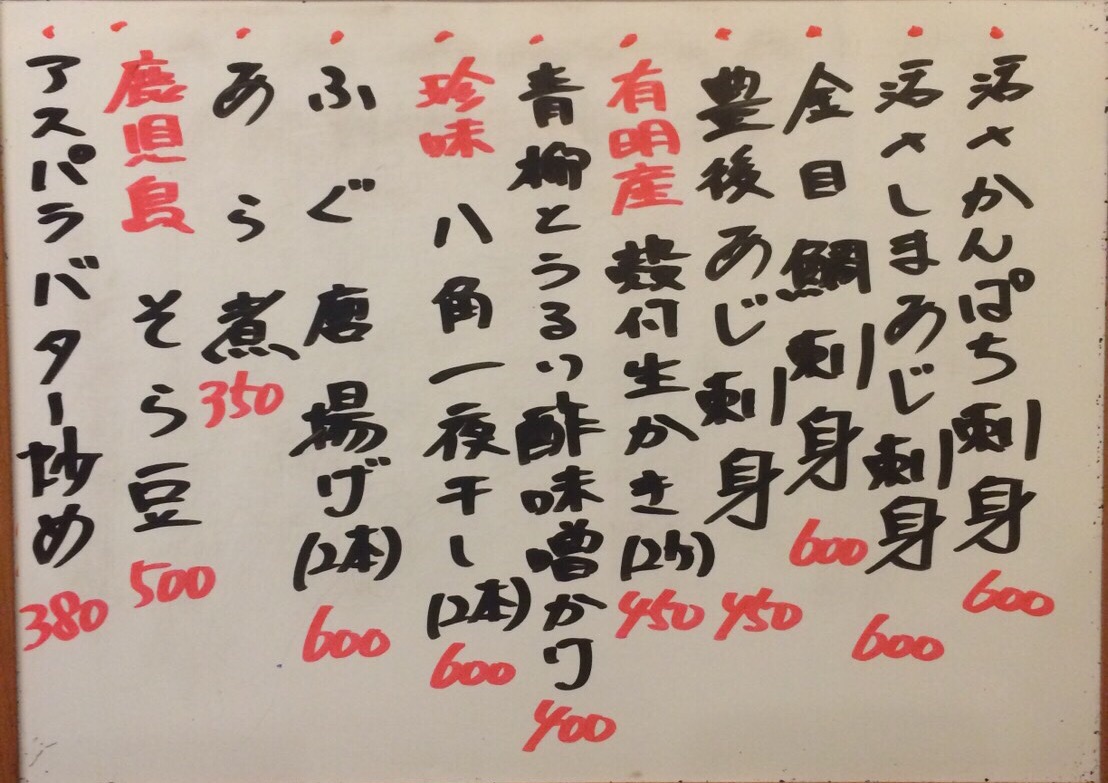 活〆かんぱち刺身 600
活〆しまあじ刺身 600
金目鯛刺身 600
豊後あじ刺身 450
有明産 殻付生かき(2ケ) 450
青柳とうるい酢味噌かけ 400
珍味 八角一夜干し(2本) 600
ふぐ唐揚げ(2本) 600
あら煮 350
鹿児島 そら豆 500
アスパラバター炒め 380